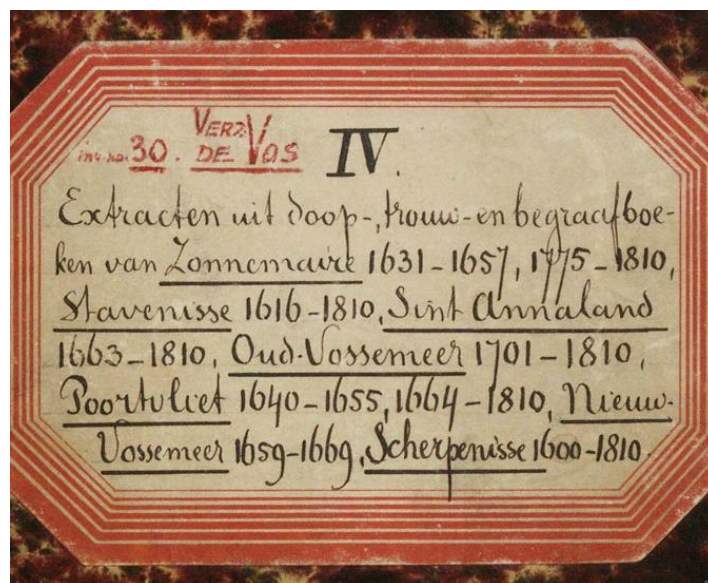 inv. no. 30. VERZ. DE VOS
IV.
Extracten uit doop-, trouw- en begraafboe-
ken van Zonnemaire 1631-1657, 1775-1810,
Stavenisse 1616-1810, Sint Annaland
1663-1810, Oud-Vossemeer 1701-1810,
Poortvliet 1640-1655, 1664-1810, Nieuw-
Vossemeer 1659-1669, Scherpenisse 1600-1810.